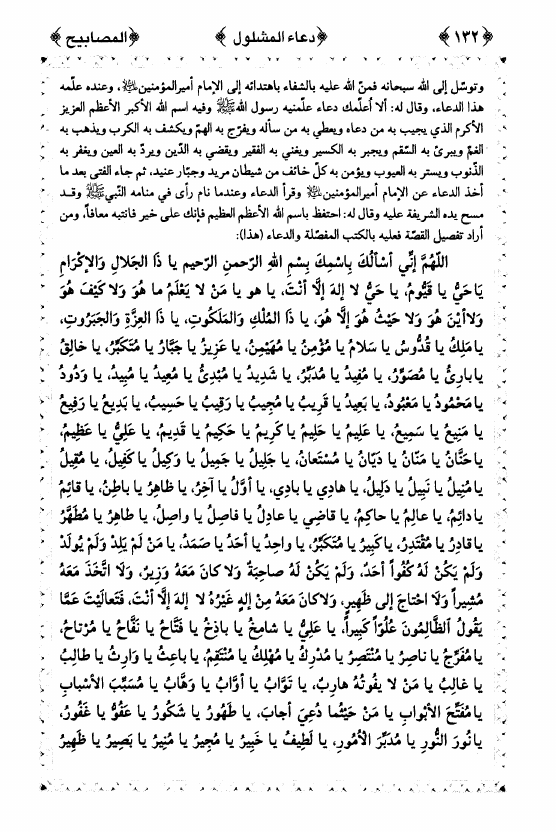 ﴿١٣٢﴾ ﴿دعاء المشلول﴾ ﴿المصابيح﴾
وتوسّل إلى الله سبحانه فمنّ الله عليه بالشفاء باهتدائه إلى الإمام أميرالمؤمنينﷺ، وعنده علّمه
هذا الدعاء، وقال له: ألا أعلّمك دعاء علّمنيه رسول اللهﷺ وفيه اسم الله الأكبر الأعظم العزيز
الأكرم الذي يجيب به من دعاه ويعطي به من سأله ويفرّج به الهمّ ويكشف به الكرب ويذهب به
الغمّ ويبرئ به السّقم ويجبر به الكسير ويغني به الفقير ويقضي به الدّين ويردّ به العين ويغفر به
الذّنوب ويستر به العيوب ويؤمن به كلّ خائف من شيطان مريد وجبّار عنيد، ثم جاء الفتى بعد ما
أخذ الدعاء عن الإمام أميرالمؤمنين وقرأ الدعاء وعندما نام رأى في منامه النّبيﷺ وقد
مسح يده الشريفة عليه وقال له: احتفظ باسم الله الأعظم العظيم فإنك على خير فانتبه معافاً، ومن
أراد تفصيل القصّة فعليه بالكتب المفصّلة والدعاء (هذا):
اللّهُمَّ إنِّي أسْألُكَ بِاسْمِكَ بِسْمِ اللهِ الرّحمنِ الرّحيمِ يا ذَا الجَلالِ وَالإكْرَامِ
يَاحَيُّ يا قَيُّومُ، يا حَيُّ لا إلهَ إلَّا أنْتَ، يا هو يا مَنْ لا يَعْلَمُ ما هُوَ وَلا كَيْفَ هُوَ
وَلاأيْنَ هُوَ وَلا حَيْثُ هُوَ إلَّا هُوَ، يا ذَا المُلْكِ وَالمَلَكُوتِ، يا ذَا العِزَّةِ وَالجَبَرُوتِ،
يامَلِكُ يا قُدُّوسُ يا سَلامُ يا مُؤْمِنُ يا مُهَيْمِنُ، يا عَزِيزُ يا جَبَّارُ يا مُتَكَبِّرُ، يا خالِقُ
يابارِئُ يا مُصَوِّرُ، يا مُفِيدُ يا مُدَبِّرُ، يا شَدِيدُ يا مُبْدِئُ يا مُعِيدُ يا مُبِيدُ، يا وَدُودُ
يامَحْمُودُ يا مَعْبُودُ، يا بَعِيدُ يا قَرِيبُ يا مُجِيبُ يا رَقِيبُ يا حَسِيبُ، يا بَدِيعُ يا رَفِيعُ
يا مَنِيعُ يا سَمِيعُ، يا عَلِيمُ يا حَلِيمُ يا كَرِيمُ يا حَكِيمُ يا قَدِيمُ، يا عَلِيُّ يا عَظِيمُ،
ياحَنَّانُ يا مَنَّانُ يا دَيّانُ يا مُسْتَعانُ، يا جَلِيلُ يا جَمِيلُ يا وَكِيلُ يا كَفِيلُ، يا مُقِيلُ
يامُنِيلُ يا نَبِيلُ يا دَلِيلُ، يا هادِي يا بادِي، يا أوَّلُ يا آخِرُ، يا ظاهِرُ يا باطِنُ، يا قائِمُ
يادائِمُ، يا عالِمُ يا حاكِمُ، يا قاضِي يا عادِلُ يا فاصِلُ يا واصِلُ، يا طاهِرُ يا مُطَهِّرُ
ياقادِرُ يا مُقْتَدِرُ، ياكَبِيرُ يا مُتَكَبِّرُ، يا واحِدُ يا أحَدُ يا صَمَدُ، يا مَنْ لَمْ يَلِدْ وَلَمْ يُولَدْ
وَلَمْ يَكُنْ لَهُ كُفُواً أحَدٌ، وَلَمْ يَكُنْ لَهُ صاحِبَةٌ وَلا كانَ مَعَهُ وَزِيرٌ، وَلَا اتَّخَذَ مَعَهُ
مُشِيراً وَلَا احْتاجَ إلى ظَهِيرٍ، وَلاكانَ مَعَهُ مِنْ إلهٍ غَيْرُهُ لا إلهَ إلَّا أنْتَ، فَتَعالَيْتَ عَمَّا
يَقُولُ الظَّالِمُونَ عُلُوّاً كَبِيراً، يا عَلِيُّ يا شامِخُ يا باذِخُ يا فَتَّاحُ يا نَفَّاحُ يا مُرْتاحُ،
يامُفَرِّجُ يا ناصِرُ يا مُنْتَصِرُ يا مُدْرِكُ يا مُهْلِكُ يا مُنْتَقِمُ، يا باعِثُ يا وَارِثُ يا طالِبُ
يا غالِبُ يا مَنْ لا يَفُوتُهُ هارِبٌ، يا تَوَّابُ يا أوَّابُ يا وَهَّابُ يا مُسَبِّبَ الأسْبابِ
يامُفَتِّحَ الأبْوابِ يا مَنْ حَيْثُما دُعِيَ أجابَ، يا طَهُورُ يا شَكُورُ يا عَفُوُّ يا غَفُورُ،
يانُورَ النُّورِ يا مُدَبِّرَ الأُمُورِ، يا لَطِيفُ يا خَبِيرُ يا مُجِيرُ يا مُنِيرُ يا بَصِيرُ يا ظَهِيرُ